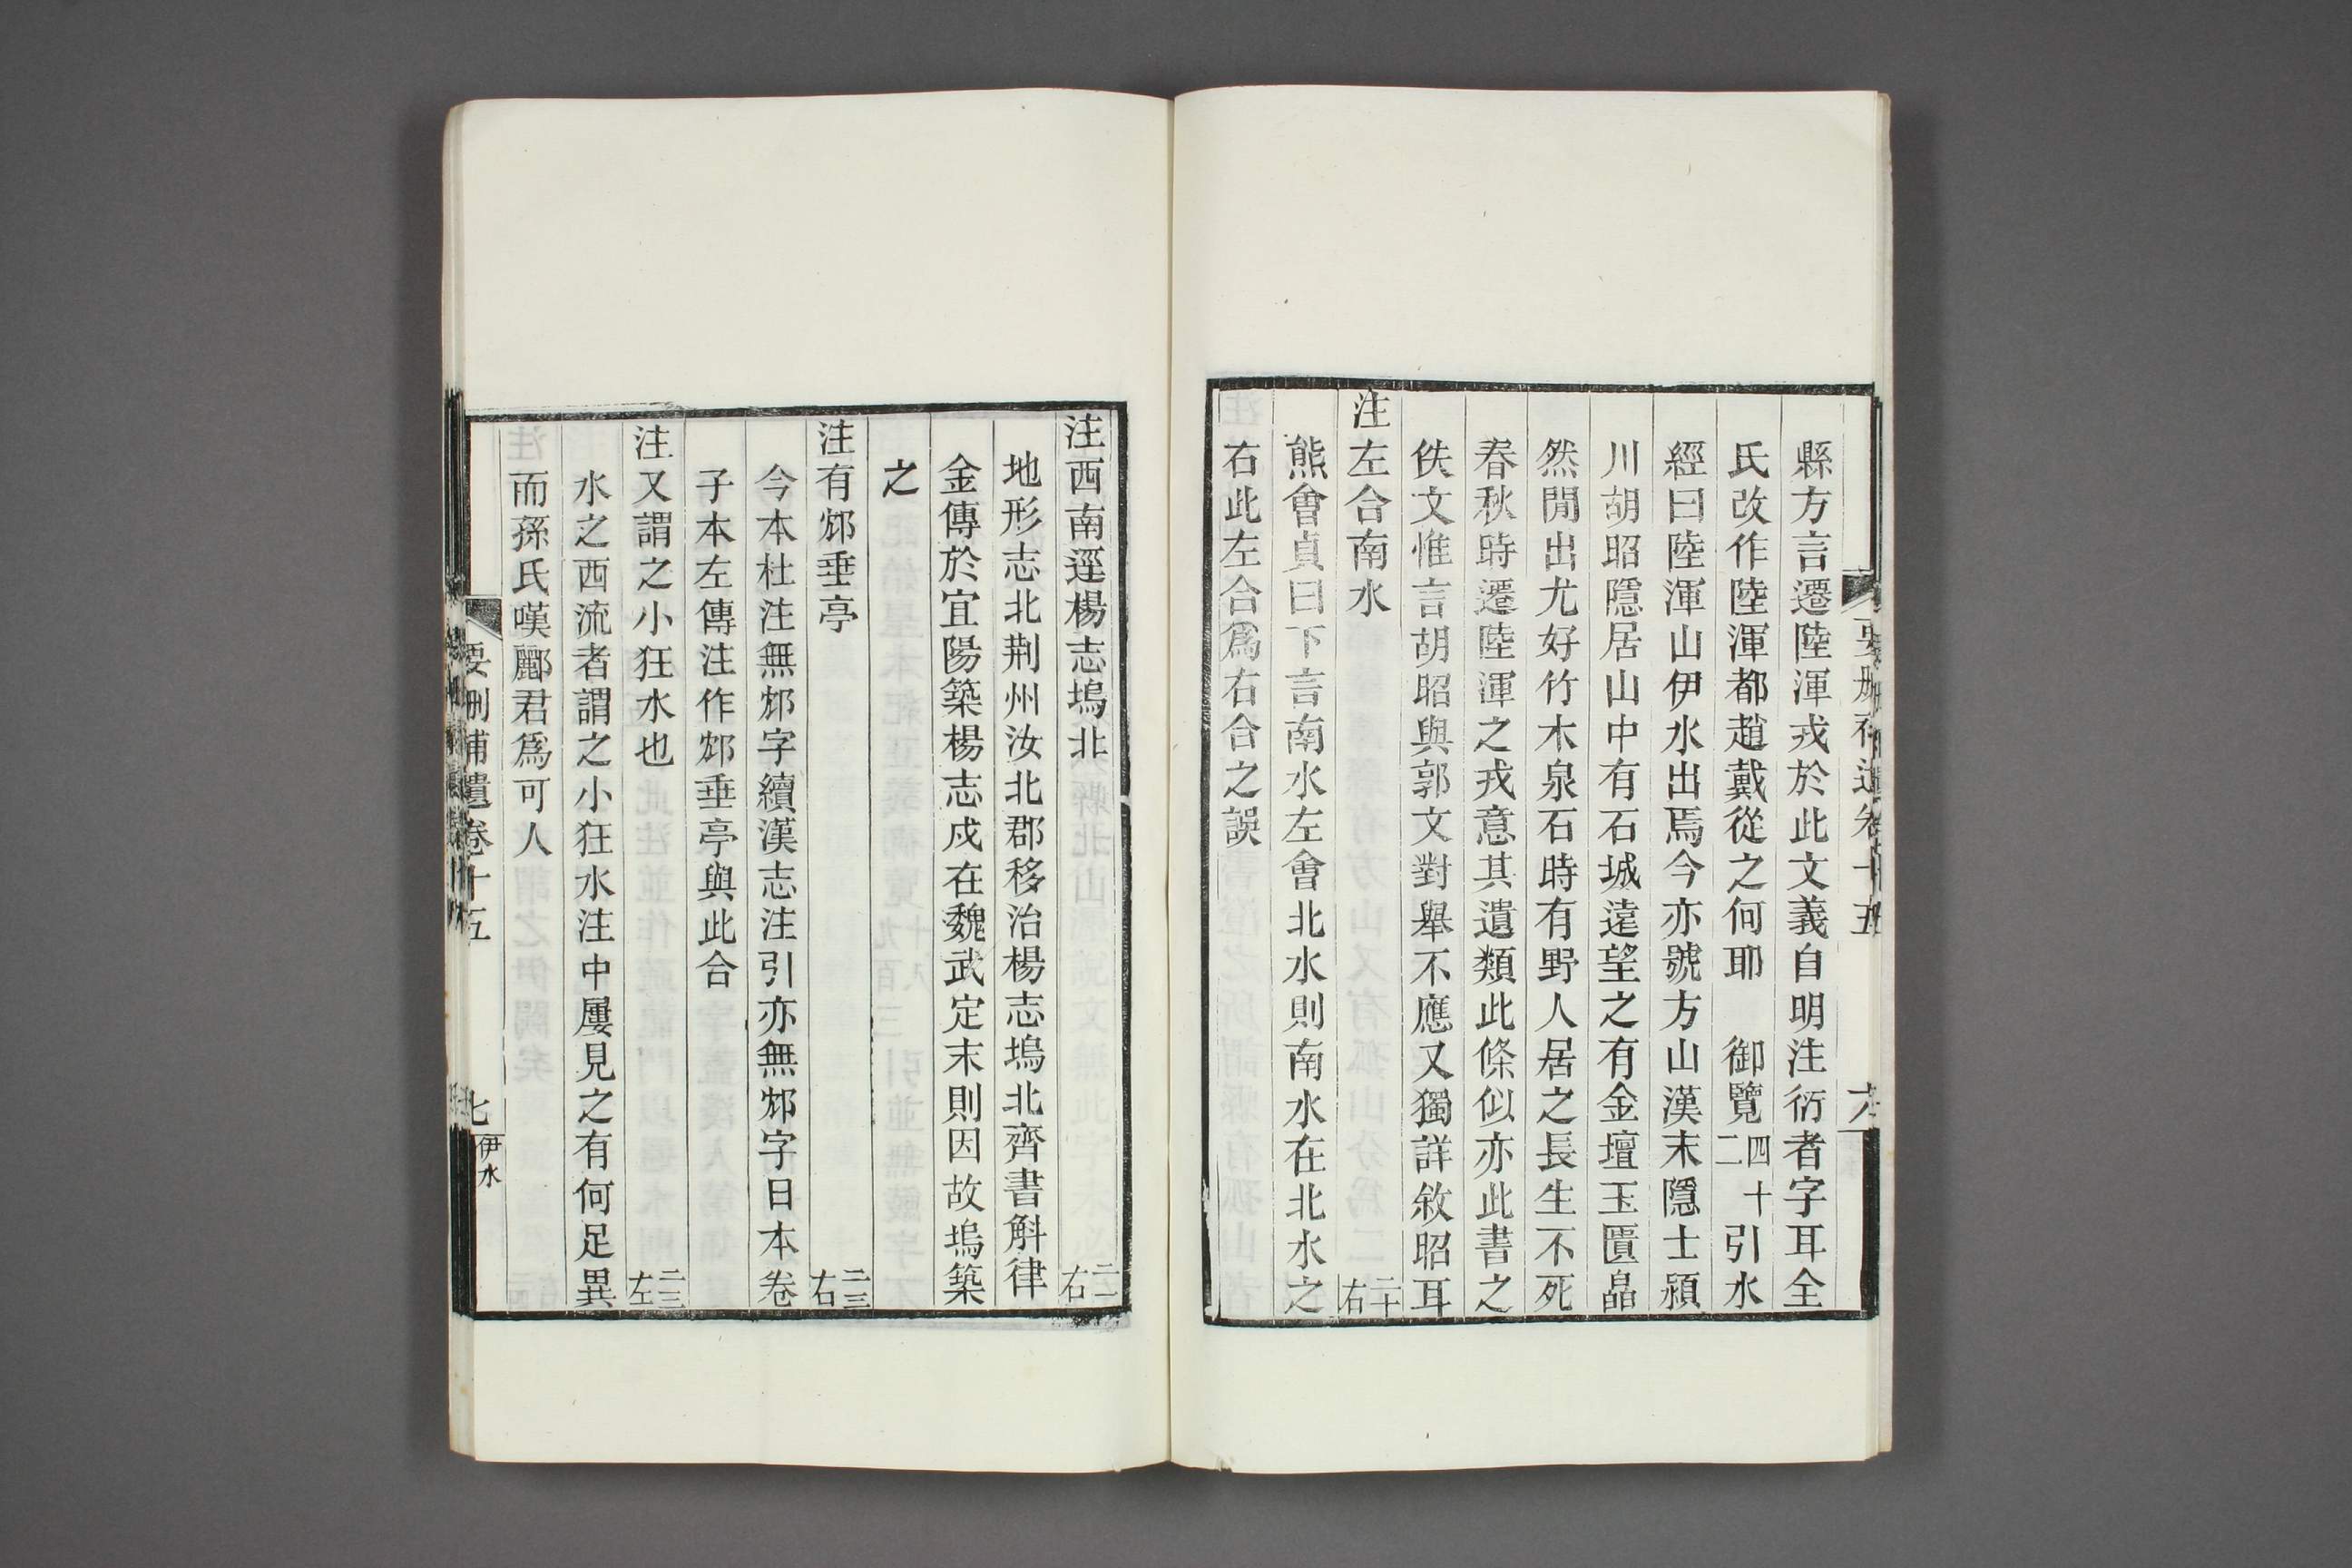 縣方言遷陸渾戎於此文義自明注衍者字耳全
氏改作陸渾都趙戴從之何耶　御覽四十二引水
經曰陸渾山伊水出焉今亦號方山漢末隱士潁
川胡昭隱居山中有石城遠望之有金壇玉匱晶
然閒出尤好竹木泉石時有野人居之長生不死
春秋時遷陸渾之戎意其遺類此條似亦此書之
佚文惟言胡昭與郭文對舉不應又獨詳敘昭耳
注左合南水　二十右
熊會貞曰下言南水左會北水則南水在北水之
右此左合爲右合之誤
注西南逕楊志塢北　二一右
地形志北荆州汝北郡移治楊志塢北齊書斛律
金傳於宜陽築楊志戍在魏武定末則因故塢築
之
注有䢵垂亭　二三右
今本杜注無䢵字續漢志注引亦無䢵字日本卷
子本左傳注作䢵垂亭與此合
注又謂之小狂水也　二三左
水之西流者謂之小狂水注中屢見之有何足異
而孫氏嘆酈君爲可人
要刪補遺卷十五
七
伊水